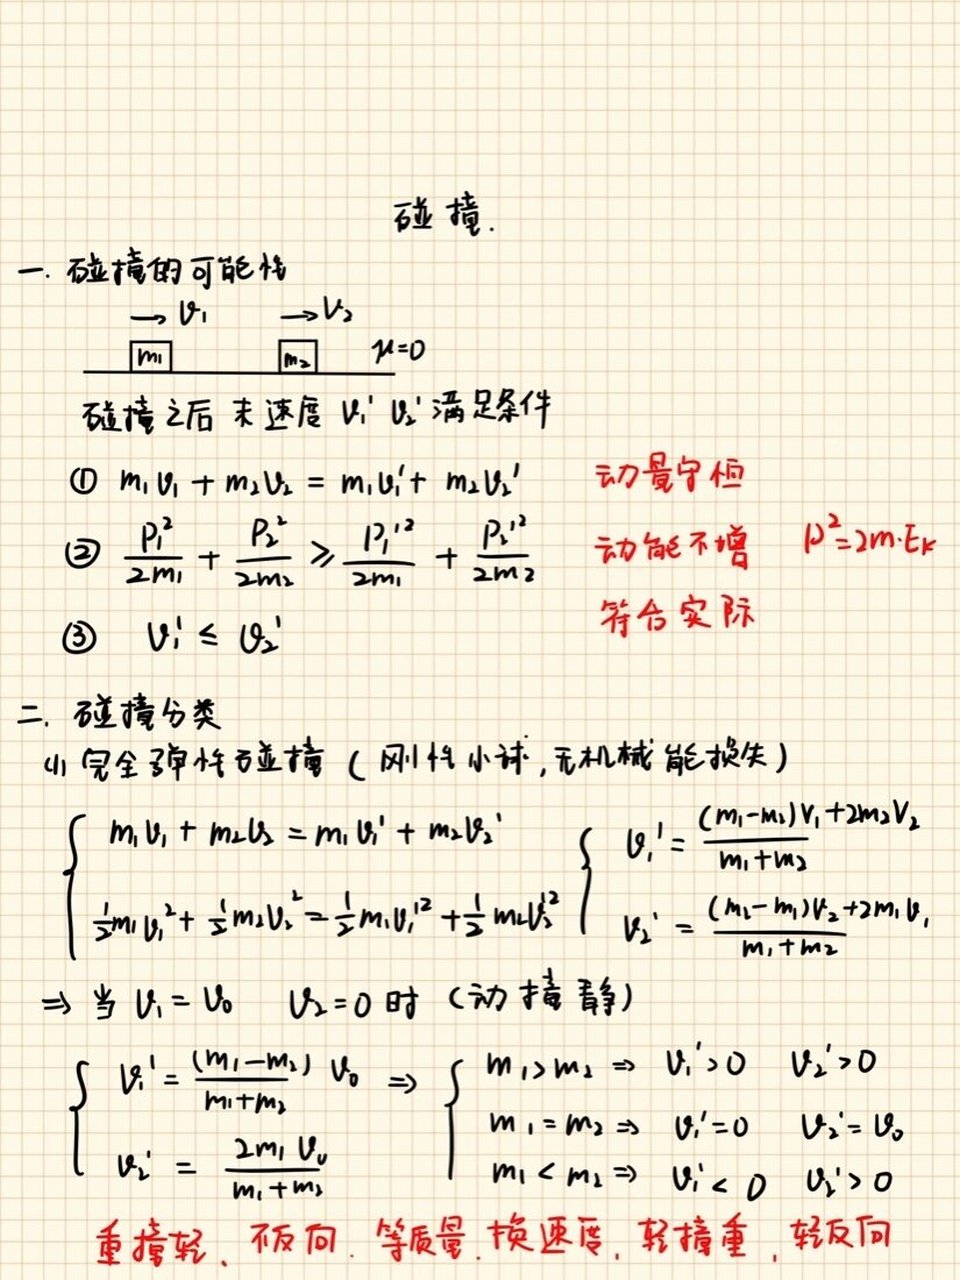 碰撞.
一. 碰撞的可能性
→ v₁ → v₂
m₁ m₂ μ=0
碰撞之后 末速度 v₁' v₂' 满足条件
① m₁v₁ + m₂v₂ = m₁v₁' + m₂v₂' 动量守恒
② P₁²/2m₁ + P₂²/2m₂ ≥ P₁'²/2m₁ + P₂'²/2m₂ 动能不增 P²=2m·Eₖ
③ v₁' ≤ v₂' 符合实际
二. 碰撞分类
(1) 完全弹性碰撞 (刚性小球,无机械能损失)
{ m₁v₁ + m₂v₂ = m₁v₁' + m₂v₂' { v₁' = (m₁-m₂)v₁+2m₂v₂/m₁+m₂
½m₁v₁² + ½m₂v₂² = ½m₁v₁'² + ½m₂v₂'² v₂' = (m₂-m₁)v₂+2m₁v₁/m₁+m₂
⇒ 当 v₁ = v₀ v₂ = 0 时 (动撞静)
{ v₁' = (m₁-m₂)/m₁+m₂ v₀ ⇒ { m₁>m₂ ⇒ v₁'>0 v₂'>0
m₁=m₂ ⇒ v₁'=0 v₂'=v₀
v₂' = 2m₁v₀/m₁+m₂ m₁<m₂ ⇒ v₁'<0 v₂'>0
重撞轻、不反向. 等质量.换速度, 轻撞重, 轻反向